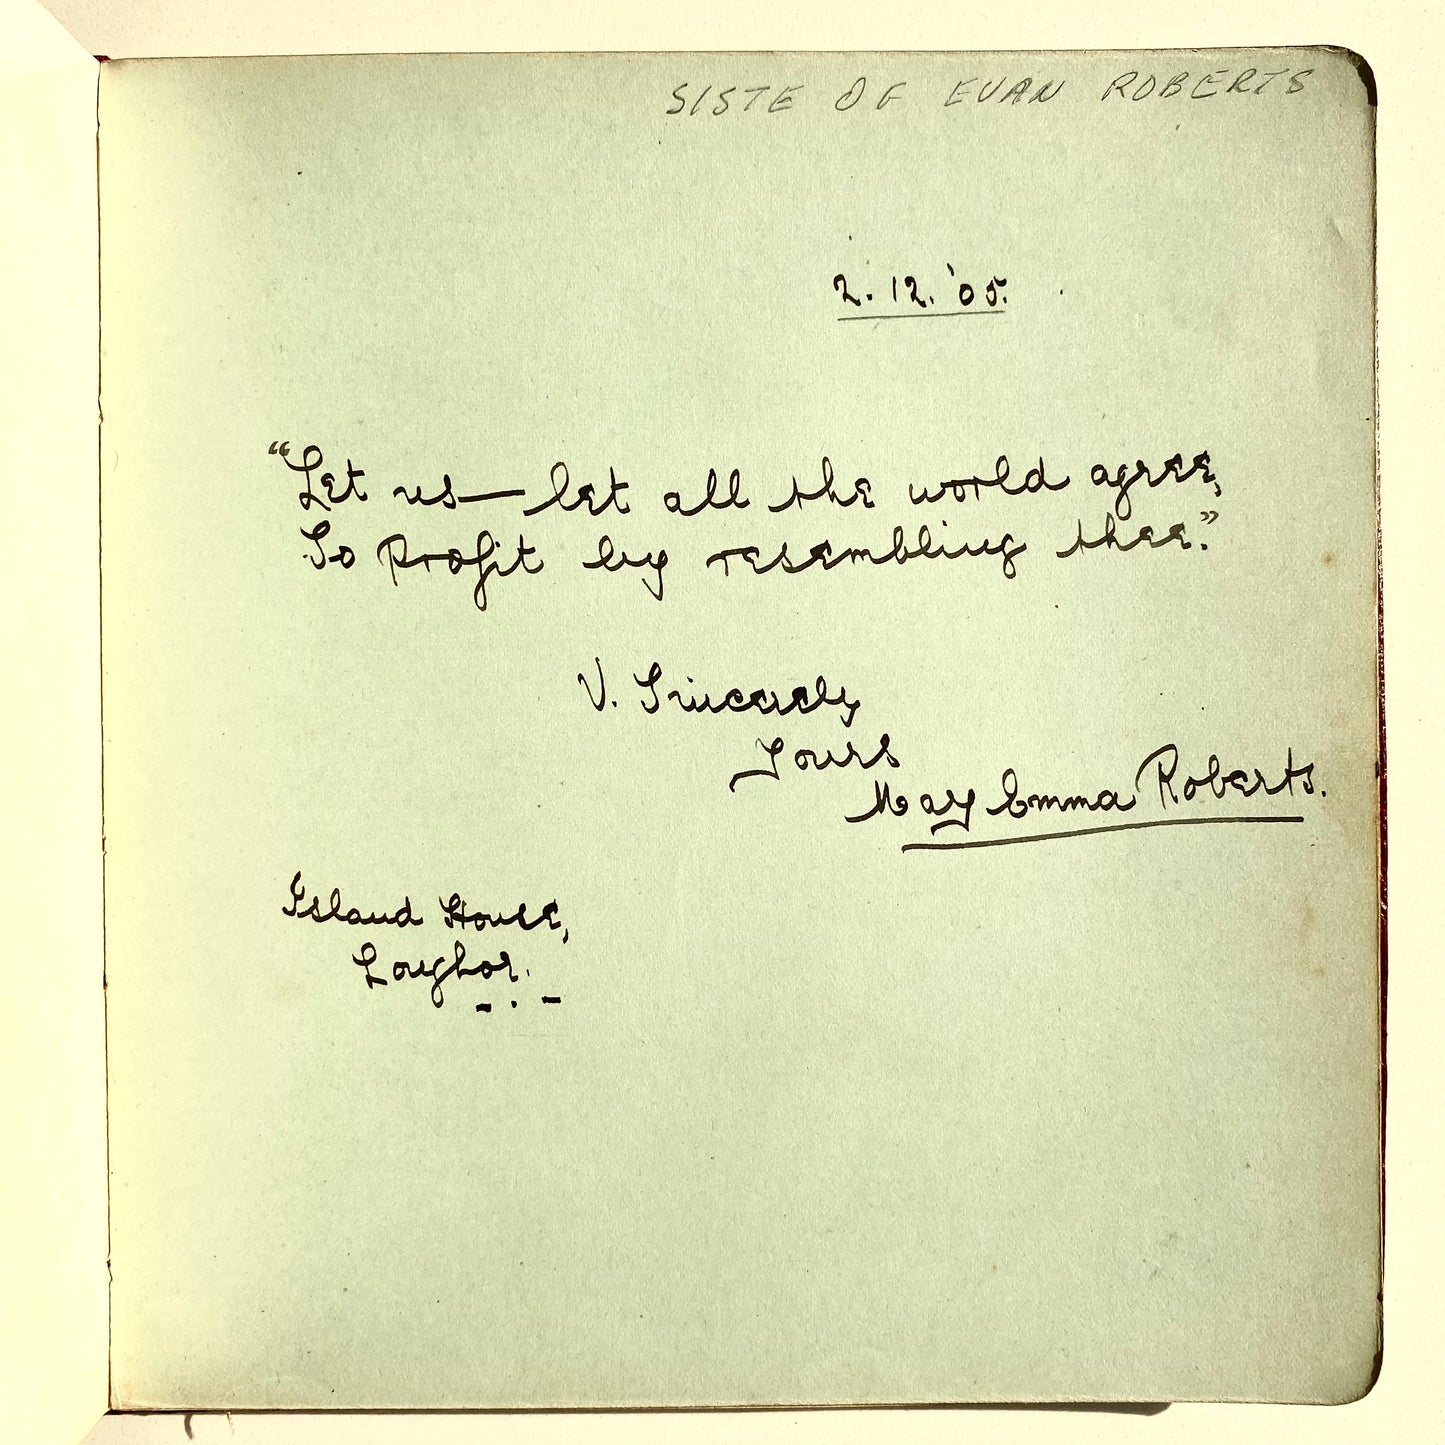 SISTE OF EVAN ROBERTS
2.12.'05.
"Let us—let all the world agree,
To Profit by resembling thee."
V. Sincerely
Yours
May Emma Roberts.
Island House,
Loughor.